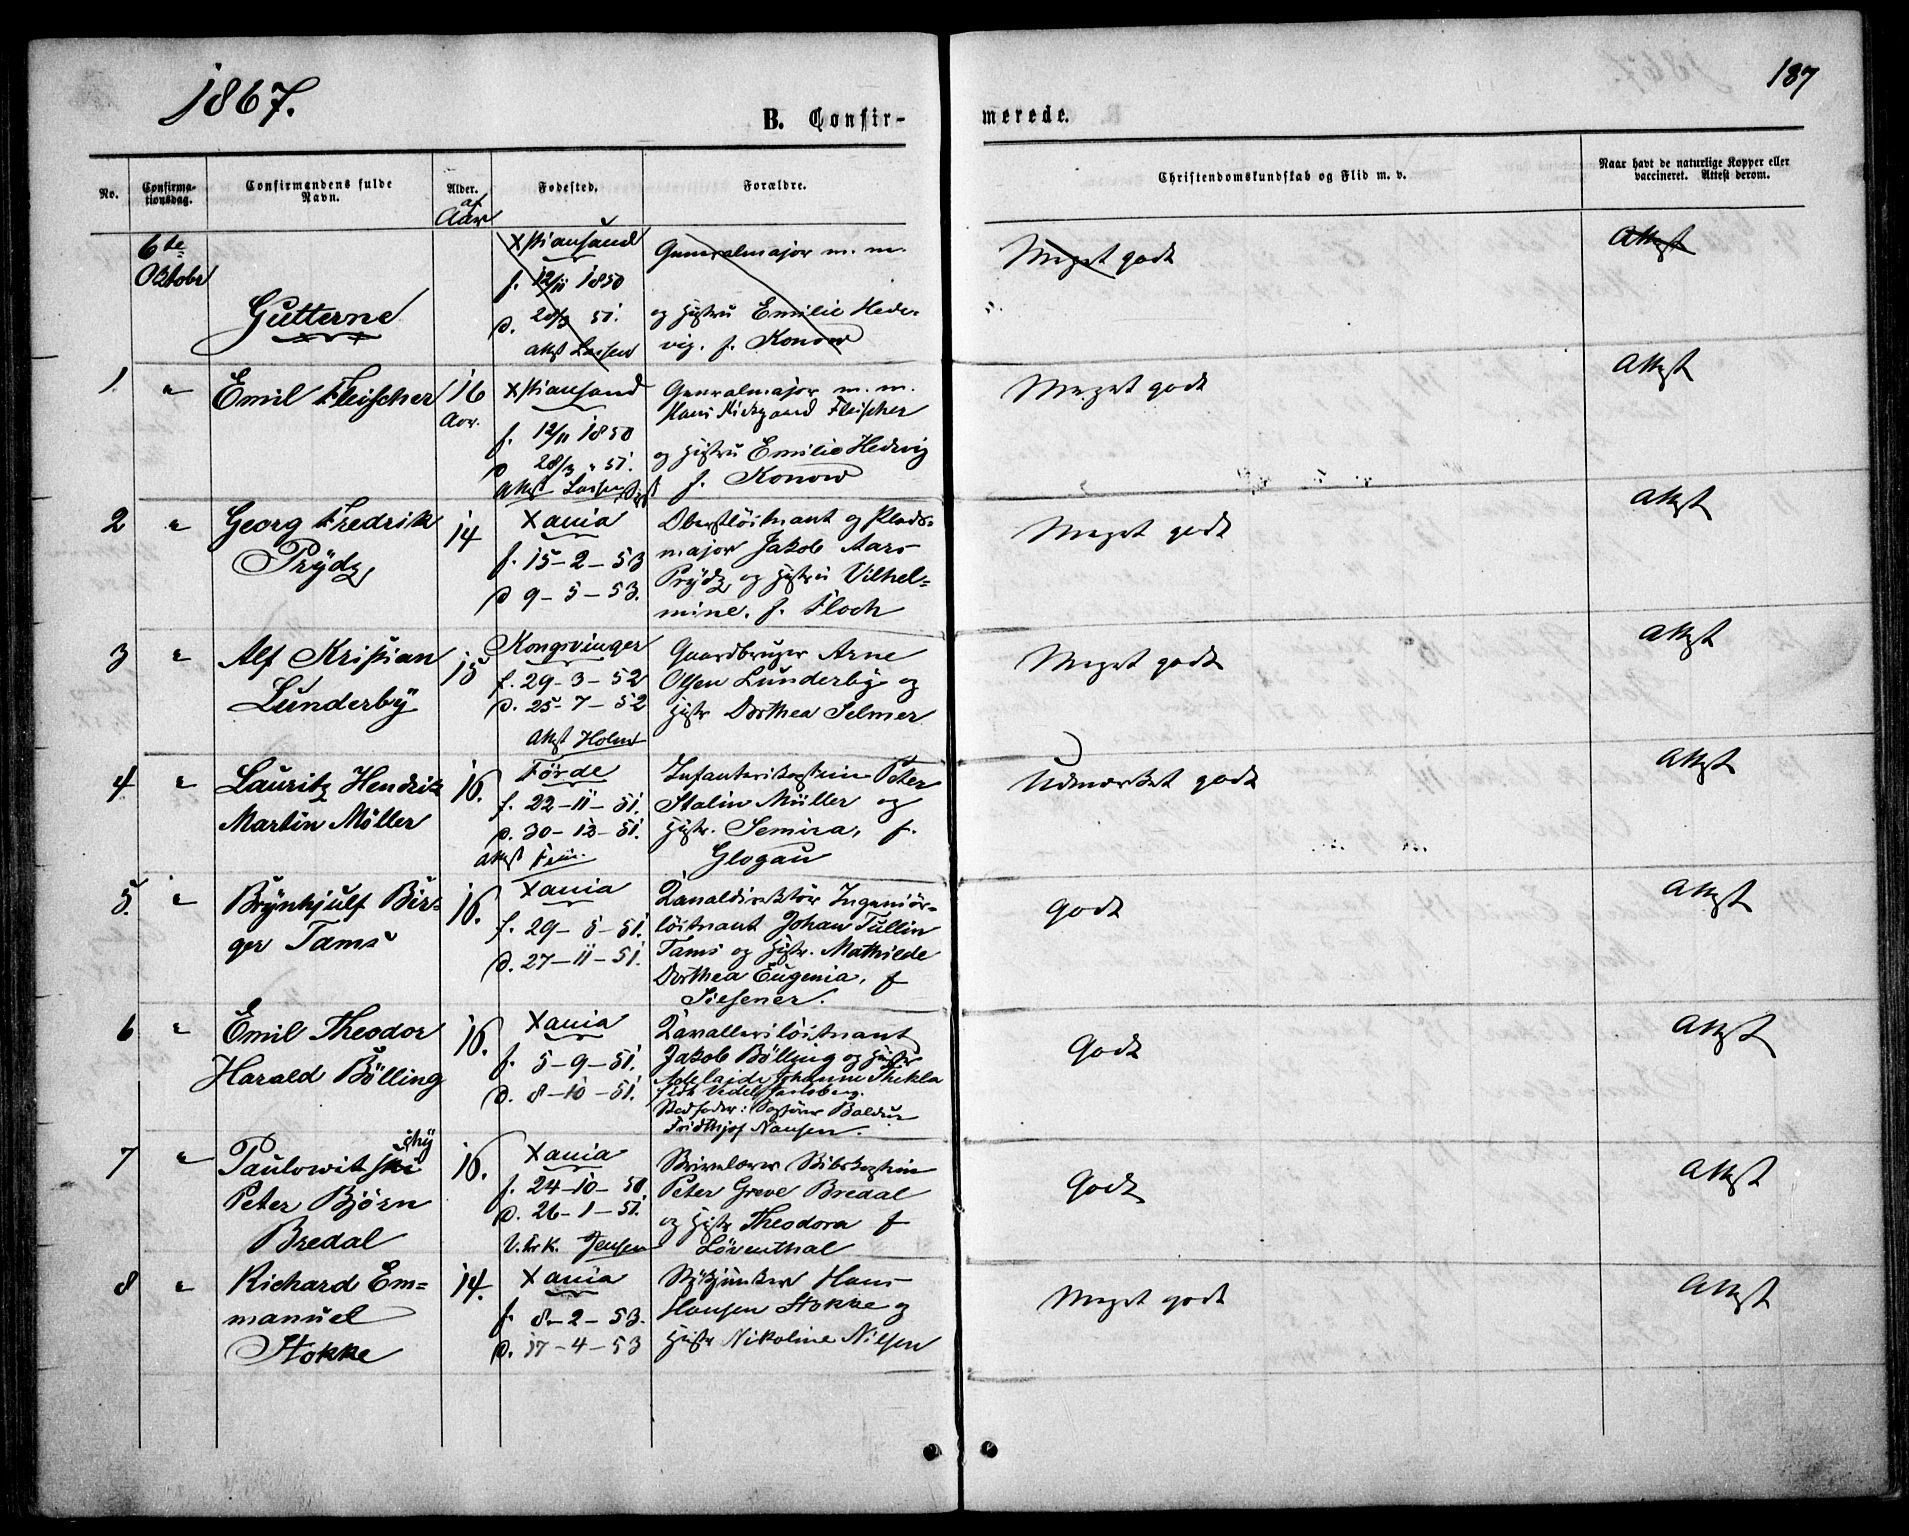 1867.
187
B. Confir-
merede.
No.
Confirma-
tionsdag.
Confirmandens fulde
Navn.
Alder.
Aar
Fødested.
Forældre.
Christendomskundskab og Flid m. v.
Naar havt de naturlige Kopper eller
vaccineret. Attest derom.
6te
Oktober
Gutterne
Xstiansand
f. 12/11 1850
d. 28/3 51.
Attst Lassen
Generalmajor m. m.
og Hustru Emilie Hed-
vig. f. Konow
Meget godt
Attest
1 " Emil Fleischer
16
Aar.
Xstiansand
f. 12/11 1850
d. 28/3 - 51.
Attst Lassen
Generalmajor m. m.
Hans Fleischer
og Hustru Emilie Hedvig
f. Konow
Meget godt
Attest
2 " Georg Fredrik
Prydz
14
Xania
f. 15-2-53
d 9-5-53.
Oberstløitnant og Plads-
major Jakob Aars
Prydz og Hustru Vilhel-
mine. f. Floch
Meget godt
Attest
3 " Alf Kristian
Lunderby
15
Kongsvinger
f. 29-3-52
d. 25-7-52
Attst Holm
Gaardbruger Arne
Olsen Lunderby og
Hustr Dorthea Selmer
Meget godt
Attest
4 " Lauritz Hendrik
Martin Møller
16.
Førde
f. 22-11-51.
d. 30-12-51.
Attst
Infanterikaptein Peter
Stalin Müller og
Hustr. Semira, f.
Glogau
Udmærket godt
Attest
5. " Brynhjulf Bir-
ger Tams
16.
Xania
f. 29-5-51.
d. 27-11-51.
Kanaldirektør Ingeniør-
løitnant Johan Tullin
Tams og Hustr. Mathilde
Dorthea Eugenia, f
Siesener.
Godt
Attest
6 " Emil Theodor
Harald Bölling
16.
Xania
f. 5-9-51.
d. 8-10-51.
Kavalleriløitnant
Jakob Bölling og Hustru
Adelaide Johanne Thekla
Vedel Jarlsberg.
Stedfader: Baldur
Fridthjof Nansen.
Godt
Attest
7 " Paulowitsky
Peter Bjørn
Bredal
16.
Xania
f. 24-10-50.
d. 26-1-51.
V. Fr K. Jensen
Peter Greve Bredal
og Hustr Theodora f
Løventhal
Godt
Attest
8 " Richard Em-
manuel
Stokke
14.
Xania
f. 8-2-53.
d. 17-4-53
Hans
Hansen Stokke og
Hustr Nikoline Nilsen
Meget godt
Attest